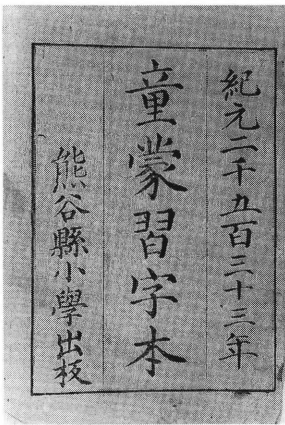 紀元二千五百三十三年
童蒙習字本
熊谷縣小學出板